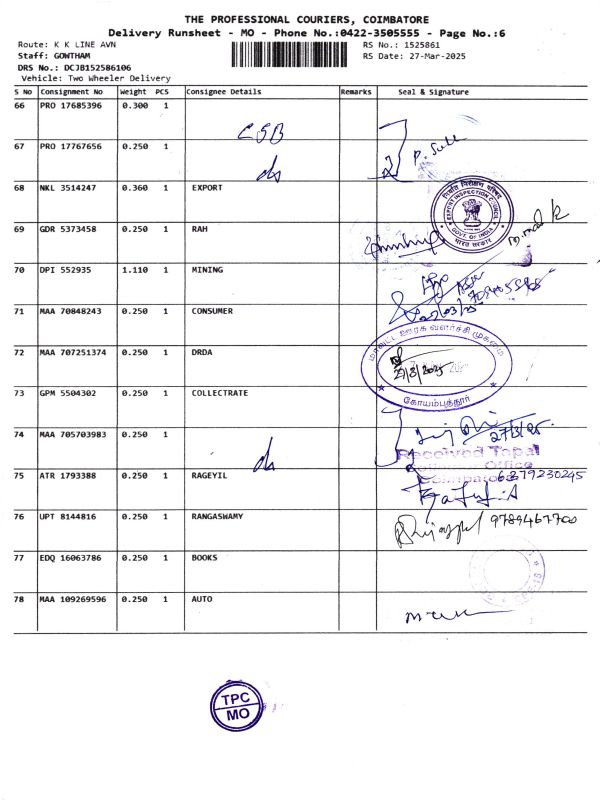 THE PROFESSIONAL COURIERS, COIMBATORE
Delivery Runsheet - MO - Phone No.:0422-3505555 - Page No.:6
Route: K K LINE AVN RS No.: 1525861
Staff: GOWTHAM RS Date: 27-Mar-2025
DRS No.: DCJB152586106
Vehicle: Two Wheeler Delivery
S No Consignment No Weight PCS Consignee Details Remarks Seal & Signature
66 PRO 17685396 0.300 1
CSB
67 PRO 17767656 0.250 1
do
68 NKL 3514247 0.360 1 EXPORT
நிர்यात
EXPORT INSPECTION COUNCIL
GOVT. OF INDIA
भारत सरकार
69 GDR 5373458 0.250 1 RAH
70 DPI 552935 1.110 1 MINING
71 MAA 70848243 0.250 1 CONSUMER
72 MAA 707251374 0.250 1 DRDA
மாவட்ட ஊரக வளர்ச்சி முகமை
27/3/2025
கோயம்புத்தூர்
73 GPM 5504302 0.250 1 COLLECTRATE
27/3/25
74 MAA 705703983 0.250 1
do
Received Tapal
75 ATR 1793388 0.250 1 RAGEYIL
6379230245
76 UPT 8144816 0.250 1 RANGASWAMY
9789467700
77 EDQ 16063786 0.250 1 BOOKS
78 MAA 109269596 0.250 1 AUTO
TPC
MO